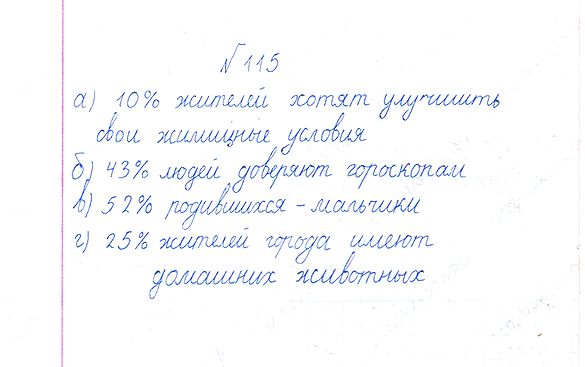 №115
а) 10% жителей хотят улучшить
свои жилищные условия
б) 43% людей доверяют гороскопам
в) 52% родившихся - мальчики
г) 25% жителей города имеют
домашних животных